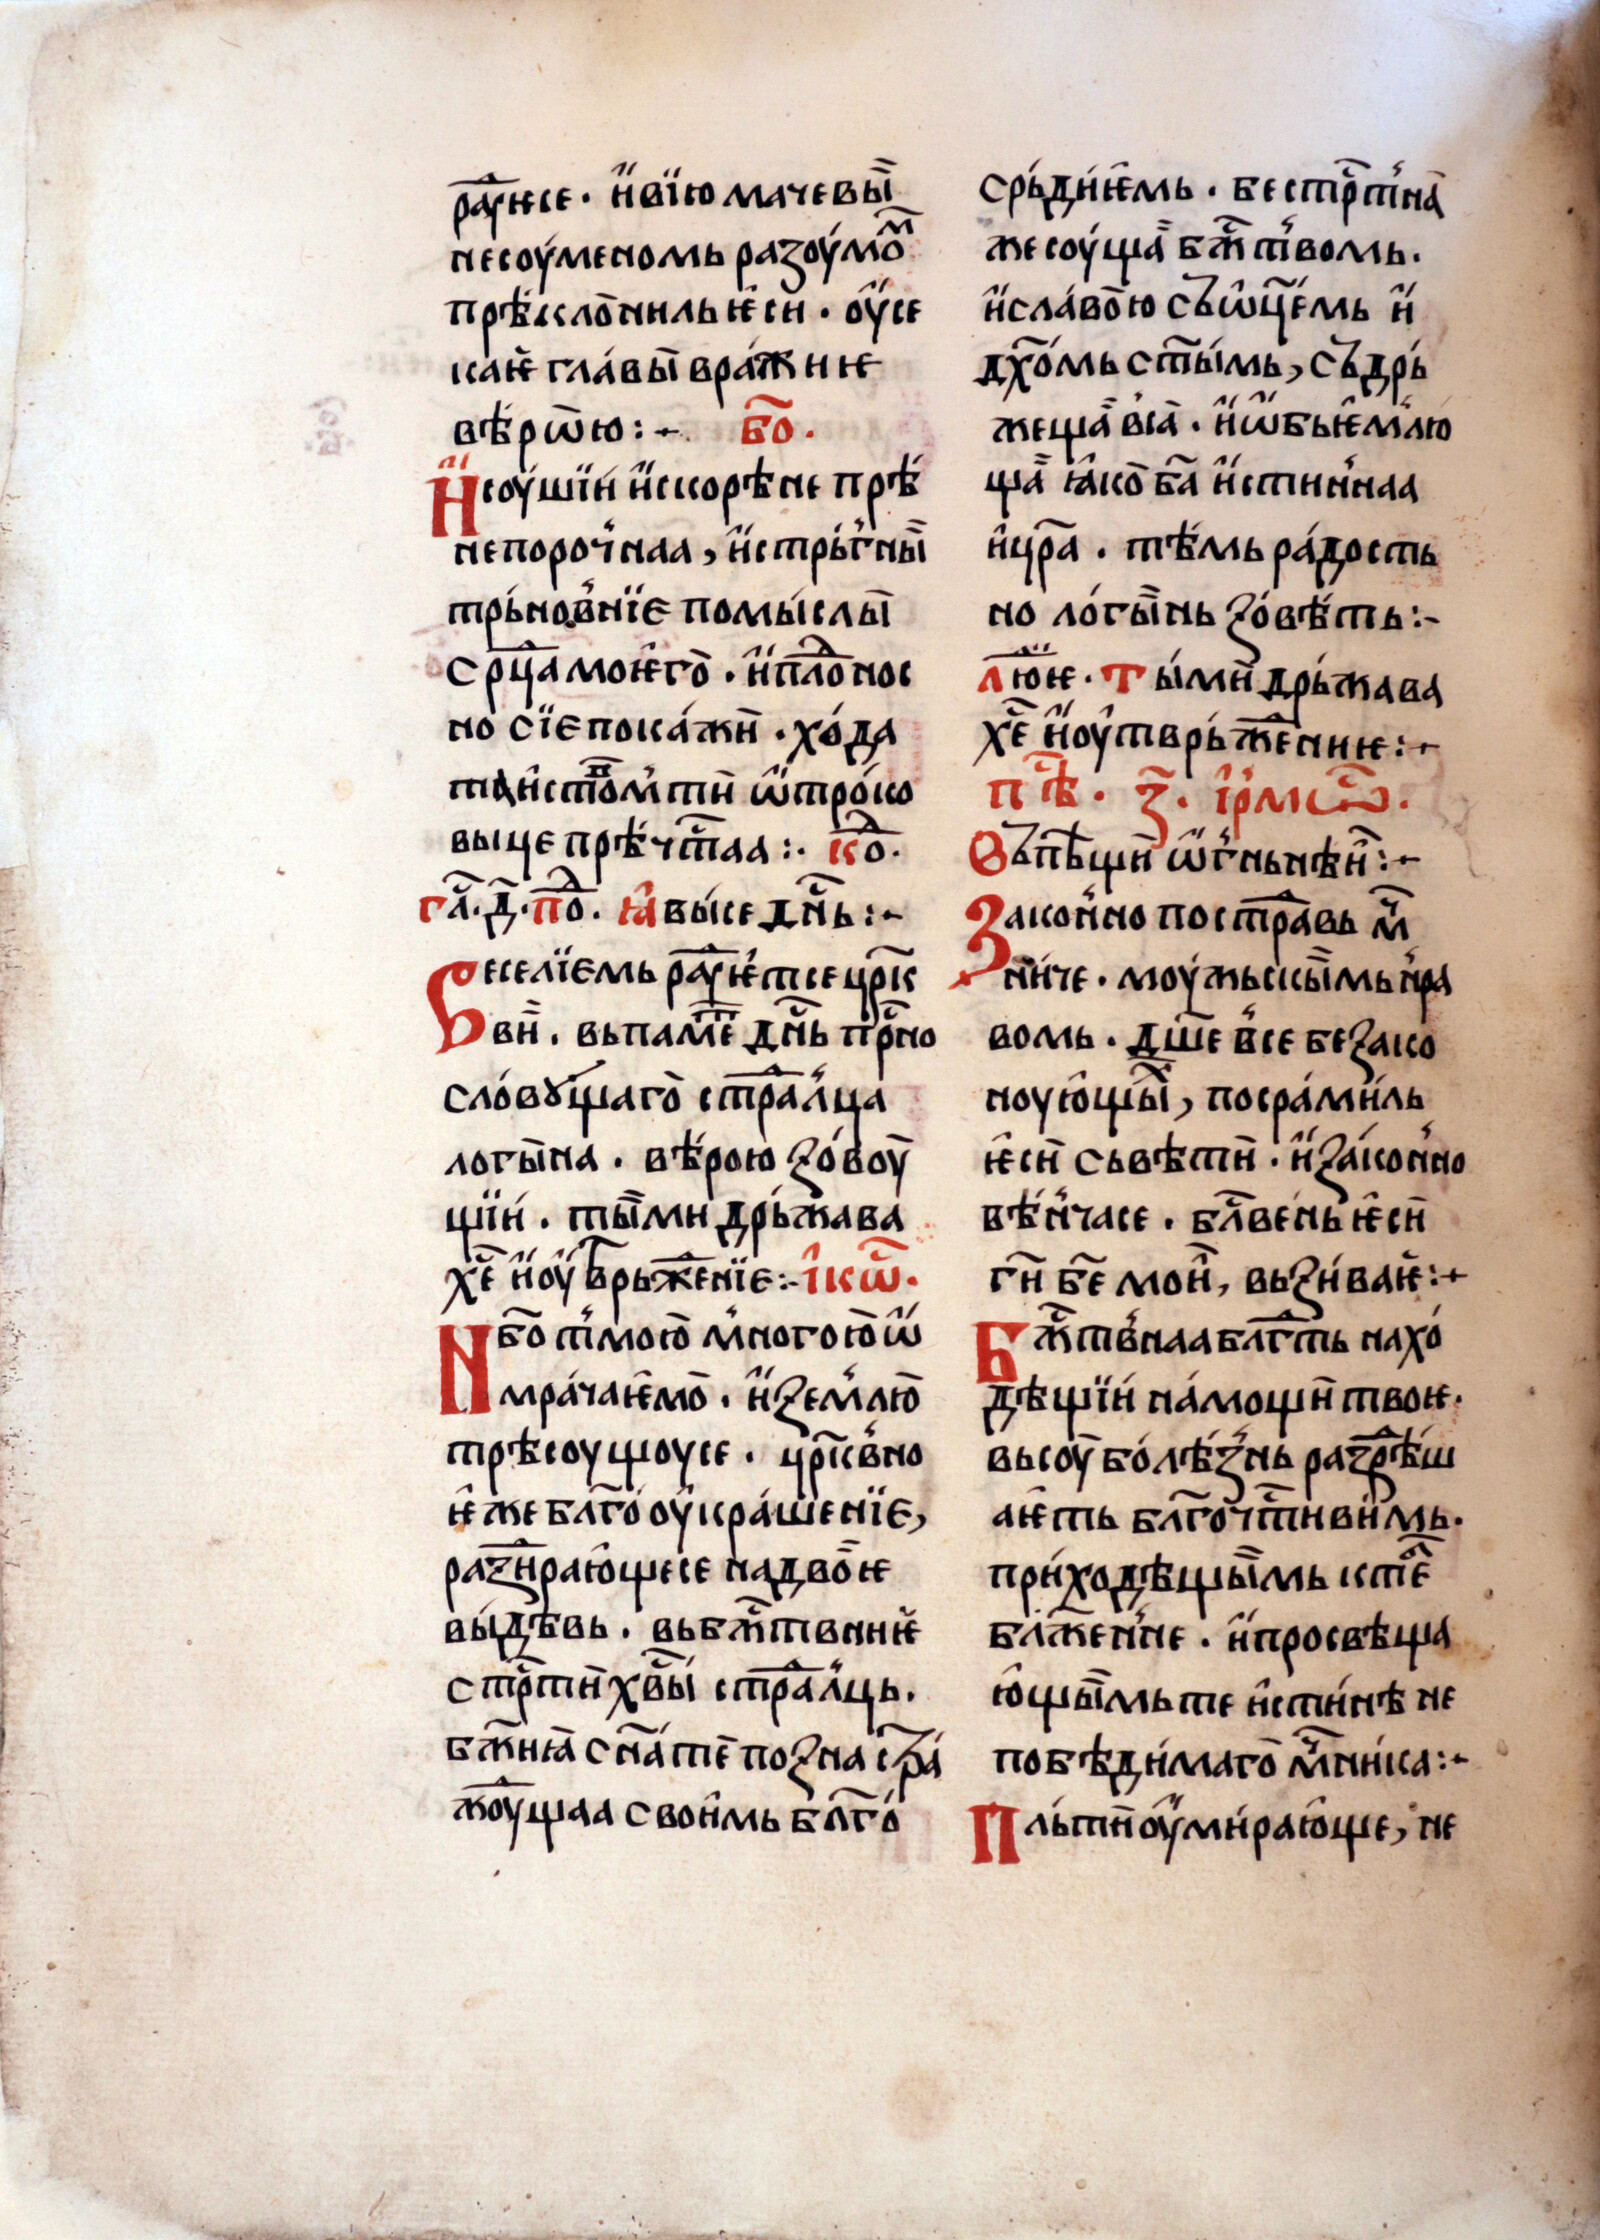 рау҄ѥсе · и҆ вїю мачевы̏
несоу́меномь разоу́мо̑м
прѣ́кло̏ниль ѥ҆си · оу҆се
каѥ҆ гла́вы̏ вра́жиѥ
вѣ́рѡ̏ю :- бо҃ ·
И҆соу́шїи и҆скорѣне прѣ́
непоро́ч꙽наа , и҆стрьг꙽ны̏
трьнов꙽нїе помы́слы̏
ср҃ца моѥ҆го̏ · и҆пло̑днос
но сїе пока́жи̏ · хо́да
таи҆ст҃вом꙽ ти̏ ѿ тро́ко
вице прѣ́чⷭ҇таа :· ко̑д ·
гл҃а · д҃ · по̑д · ꙗ҆вы́се дн҃ь :-
Веселїемь рау҄ѥ́тсе цр҃к
вы̏ · вьпаме҄т дн҃ь прⷭ҇но
сло́вꙋщаго̏ стра̑дал꙽ца
логы̏на · вѣ́рою зо́воу̏
щїи · ты̏ми дрьжава
хе҃ и҆оу҆твръжде҄нїе :- і҆кѡⷭ҇ ·
Нбо҃ т꙽мою̏ м꙽ногою̏ ѡ҆
мра́чаѥ҆мо̏ · и҆ зем꙽лю̏
трѣсоущоусе · цр҃ков꙽но
ѥ҆же бл҃го́ оу҆кра́шенїе ,
рази҄раю҆щесе надво̏ѥ
вы́дѣвь · вьбжⷭ҇твниѥ̏
стрⷭ҇ти̏ хв҃ы́ стра̑дал꙽ць ·
бж҃иꙗ̏ сн҃а́ те̏ позна стра́
жоущаа свои҆мь бл҃го́
срьдиѥ҆мь · бестрⷭ҇т꙽на̏
жесоу́ща̏ бжⷭ҇т꙽вомь ·
и҆сла́во̏ю съѡц҃е́мь и҆
дх҃омь ст҃ы́мь , съдрь
жеща̏ в꙽са̏ · и҆ѡ҆бьѥ҆м꙽лю
ща̏ ꙗ҆ко̏ ба҃ и҆стин꙽наа
и҆цр҃а · тѣ́мь ра́дость
но ло́гы̏нь зо́вѣ́ть :-
лю҄дїе · Ты́ми̏ дрьжава
хе҃ и҆оу҆тврьжде҄ниѥ :-
пѣⷭ҇ · з҃ · і҆рмѡⷭ҇ ·
Въпѣщи̏ ѡ҆г꙽ньнѣи̏ :-
Закон꙽но постра̑давь мⷱ҇
ни́че · моу́жьскы̏мь н꙽ра
вомь · дш҃е в꙽се безако
ноую҆щы̑х , посра́ми́ль
ѥ҆си̏ сьвѣти̏ · и҆за́кон꙽но
вѣн꙽часе · бл҃ве́нь ѥ҆си̏
ги҃ бе҃ мои̏ , вьзи́ваѥ̏ :-
Бжⷭ҇тв꙽наа бл҃гⷣть нахо́
дѣщїи на́мощи̏ твоѥ ·
высоу̏ бо́лѣз꙽нь разрѣ̑ш
аѥ҆ть бл҃гочⷭ҇ти́ви̏мь ·
при́ходѣщы̏мь кте҄бѣ
бла̑жен꙽не · и҆просвѣща
ю҆щы̏мь те и҆сти́нѣ не
побѣди́маго̏ мⷱ҇ни́ка :-
Пль́ти̏ оу҆ми́раю҆ще , не